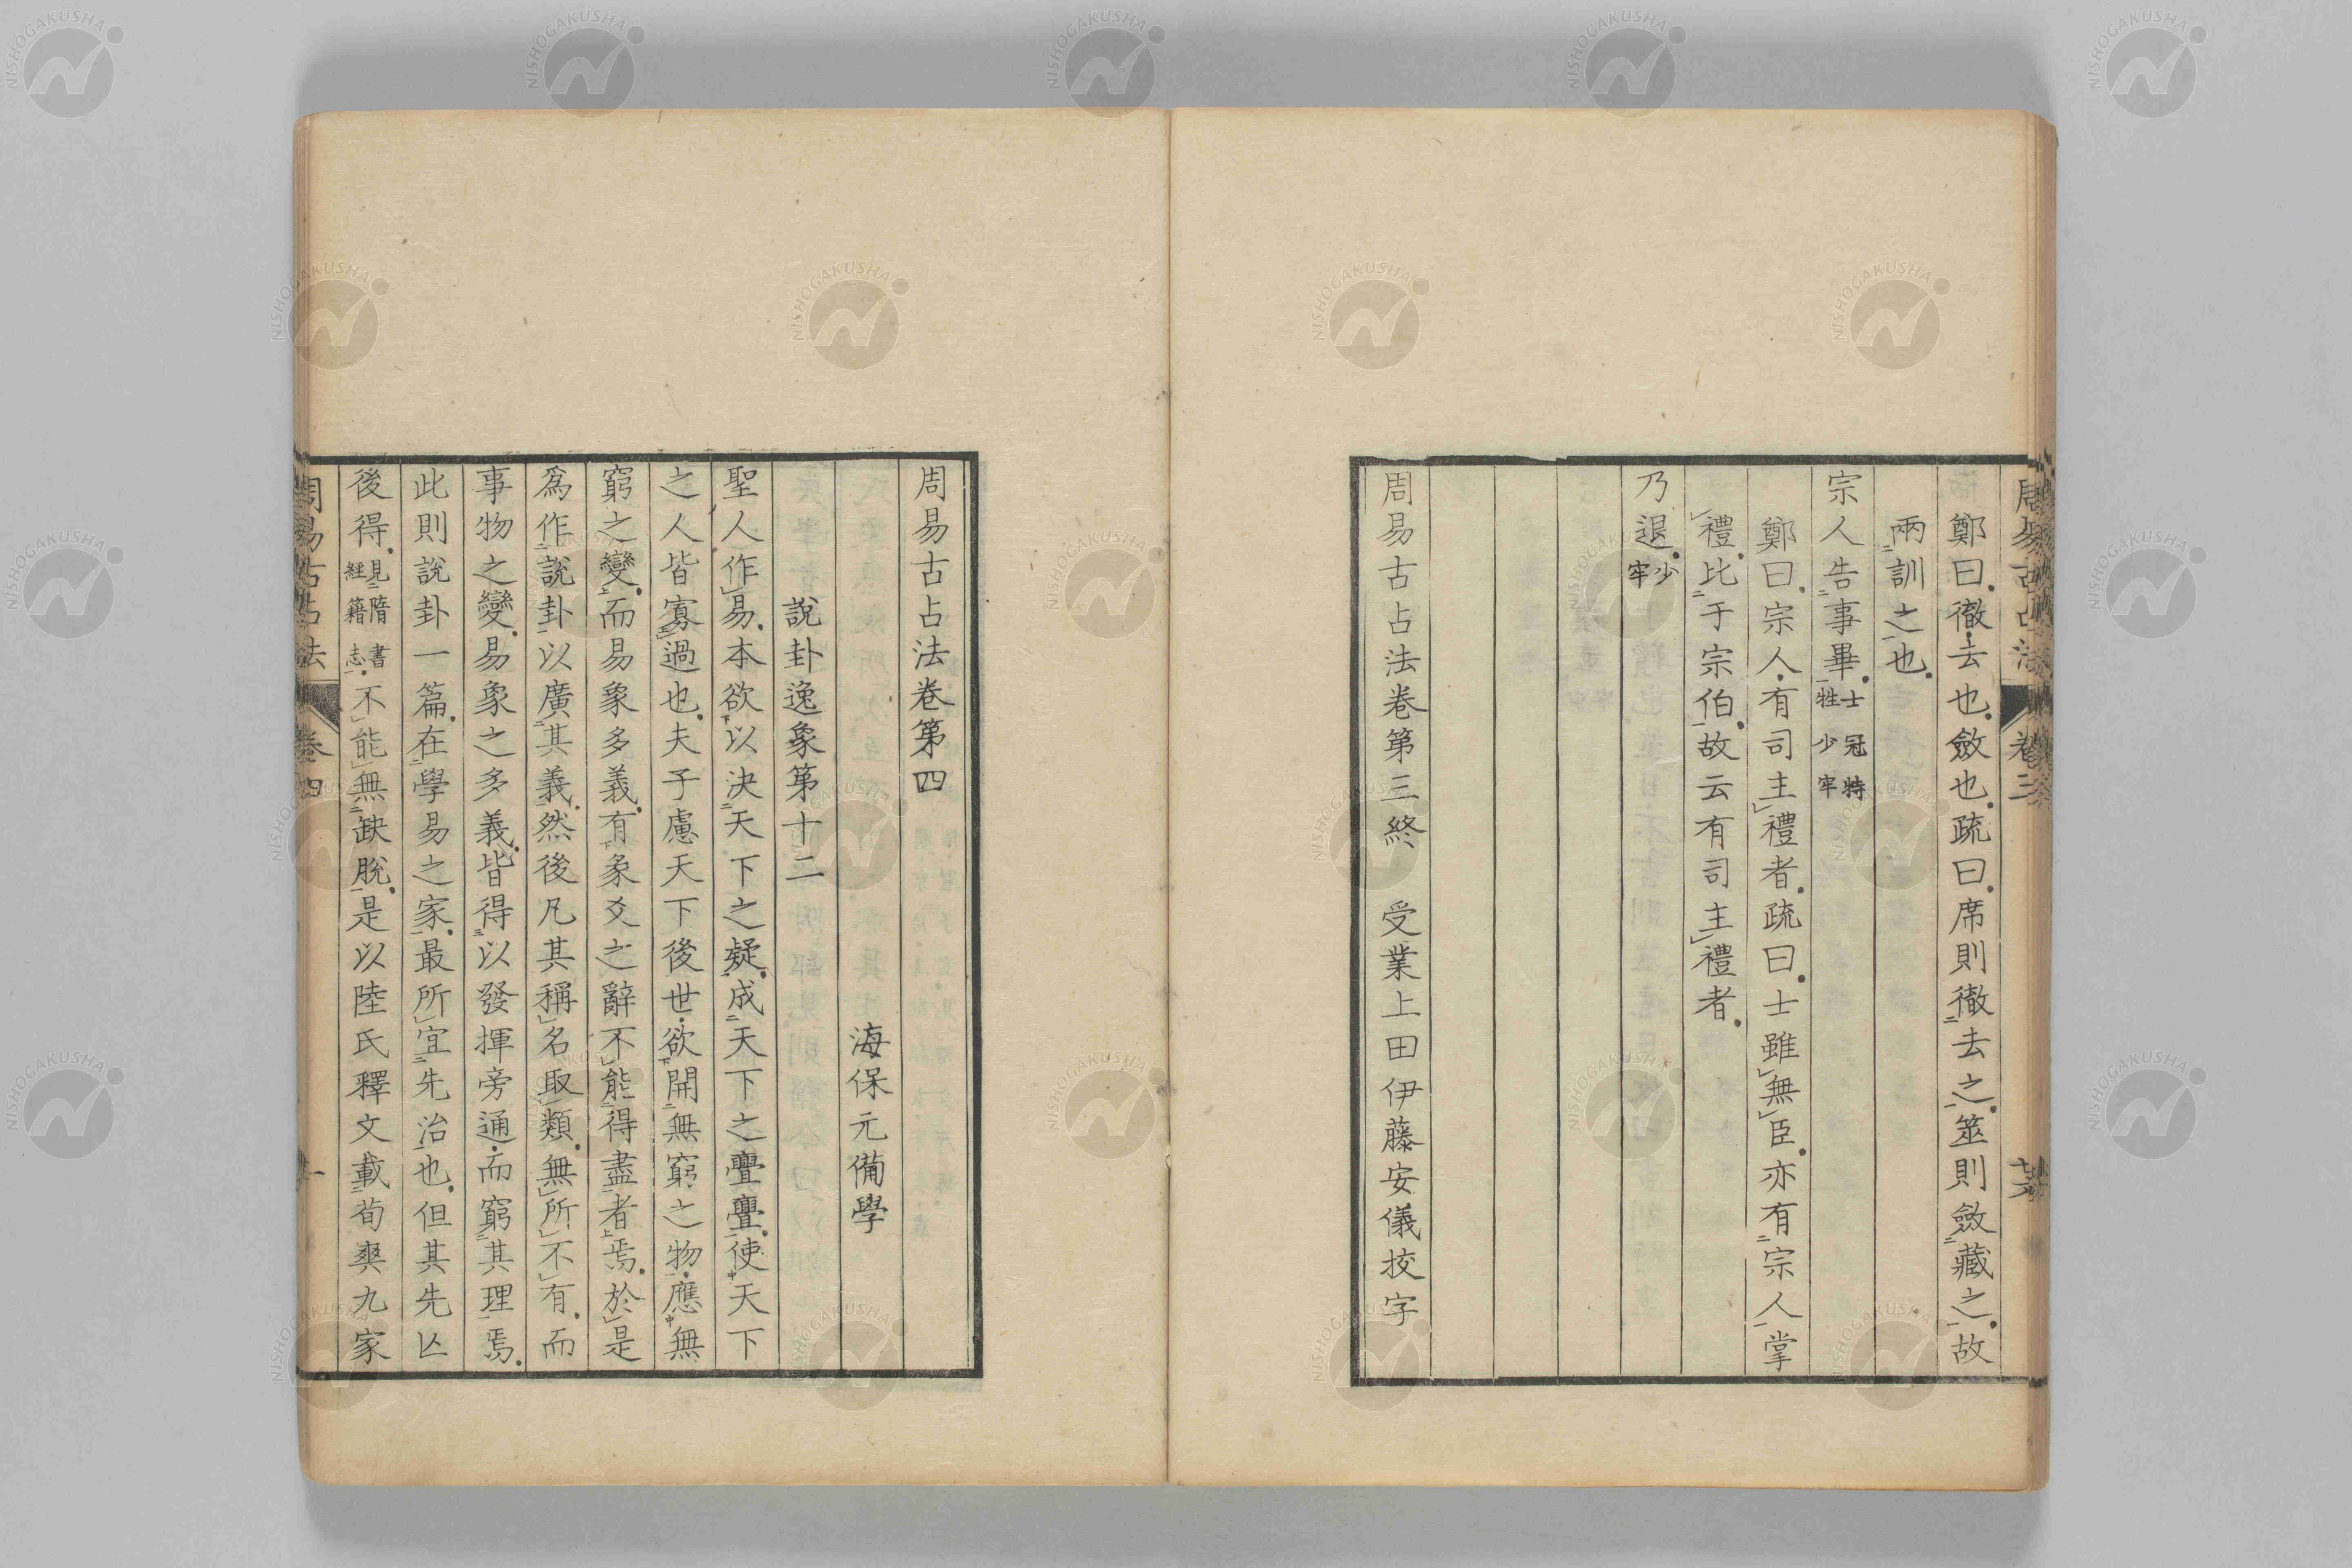 周易古占法 卷三
鄭曰徹去也斂也疏曰席則徹去之筮則斂藏之故
兩訓之也
宗人告事畢士冠特牲少牢
鄭曰宗人有司主禮者疏曰士雖無臣亦有宗人掌
禮比于宗伯故云有司主禮者
乃退少牢
周易古占法卷第三終 受業上田伊藤安儀挍字
周易古占法卷第四
海保元備學
說卦逸象第十二
聖人作易本欲以決天下之疑成天下之亹亹使天下
之人皆寡過也夫子慮天下後世欲開無窮之物應無
窮之變而易象多義有象爻之辭不能得盡者焉於是
爲作說卦以廣其義然後凡其稱名取類無所不有而
事物之變易象之多義皆得以發揮旁通而窮其理焉
此則說卦一篇在學易之家最所宜先治也但其先亾
後得見隋書經籍志不能無缺脫是以陸氏釋文載荀爽九家
周易古占法 卷四 一
NISHOGAKUSHA